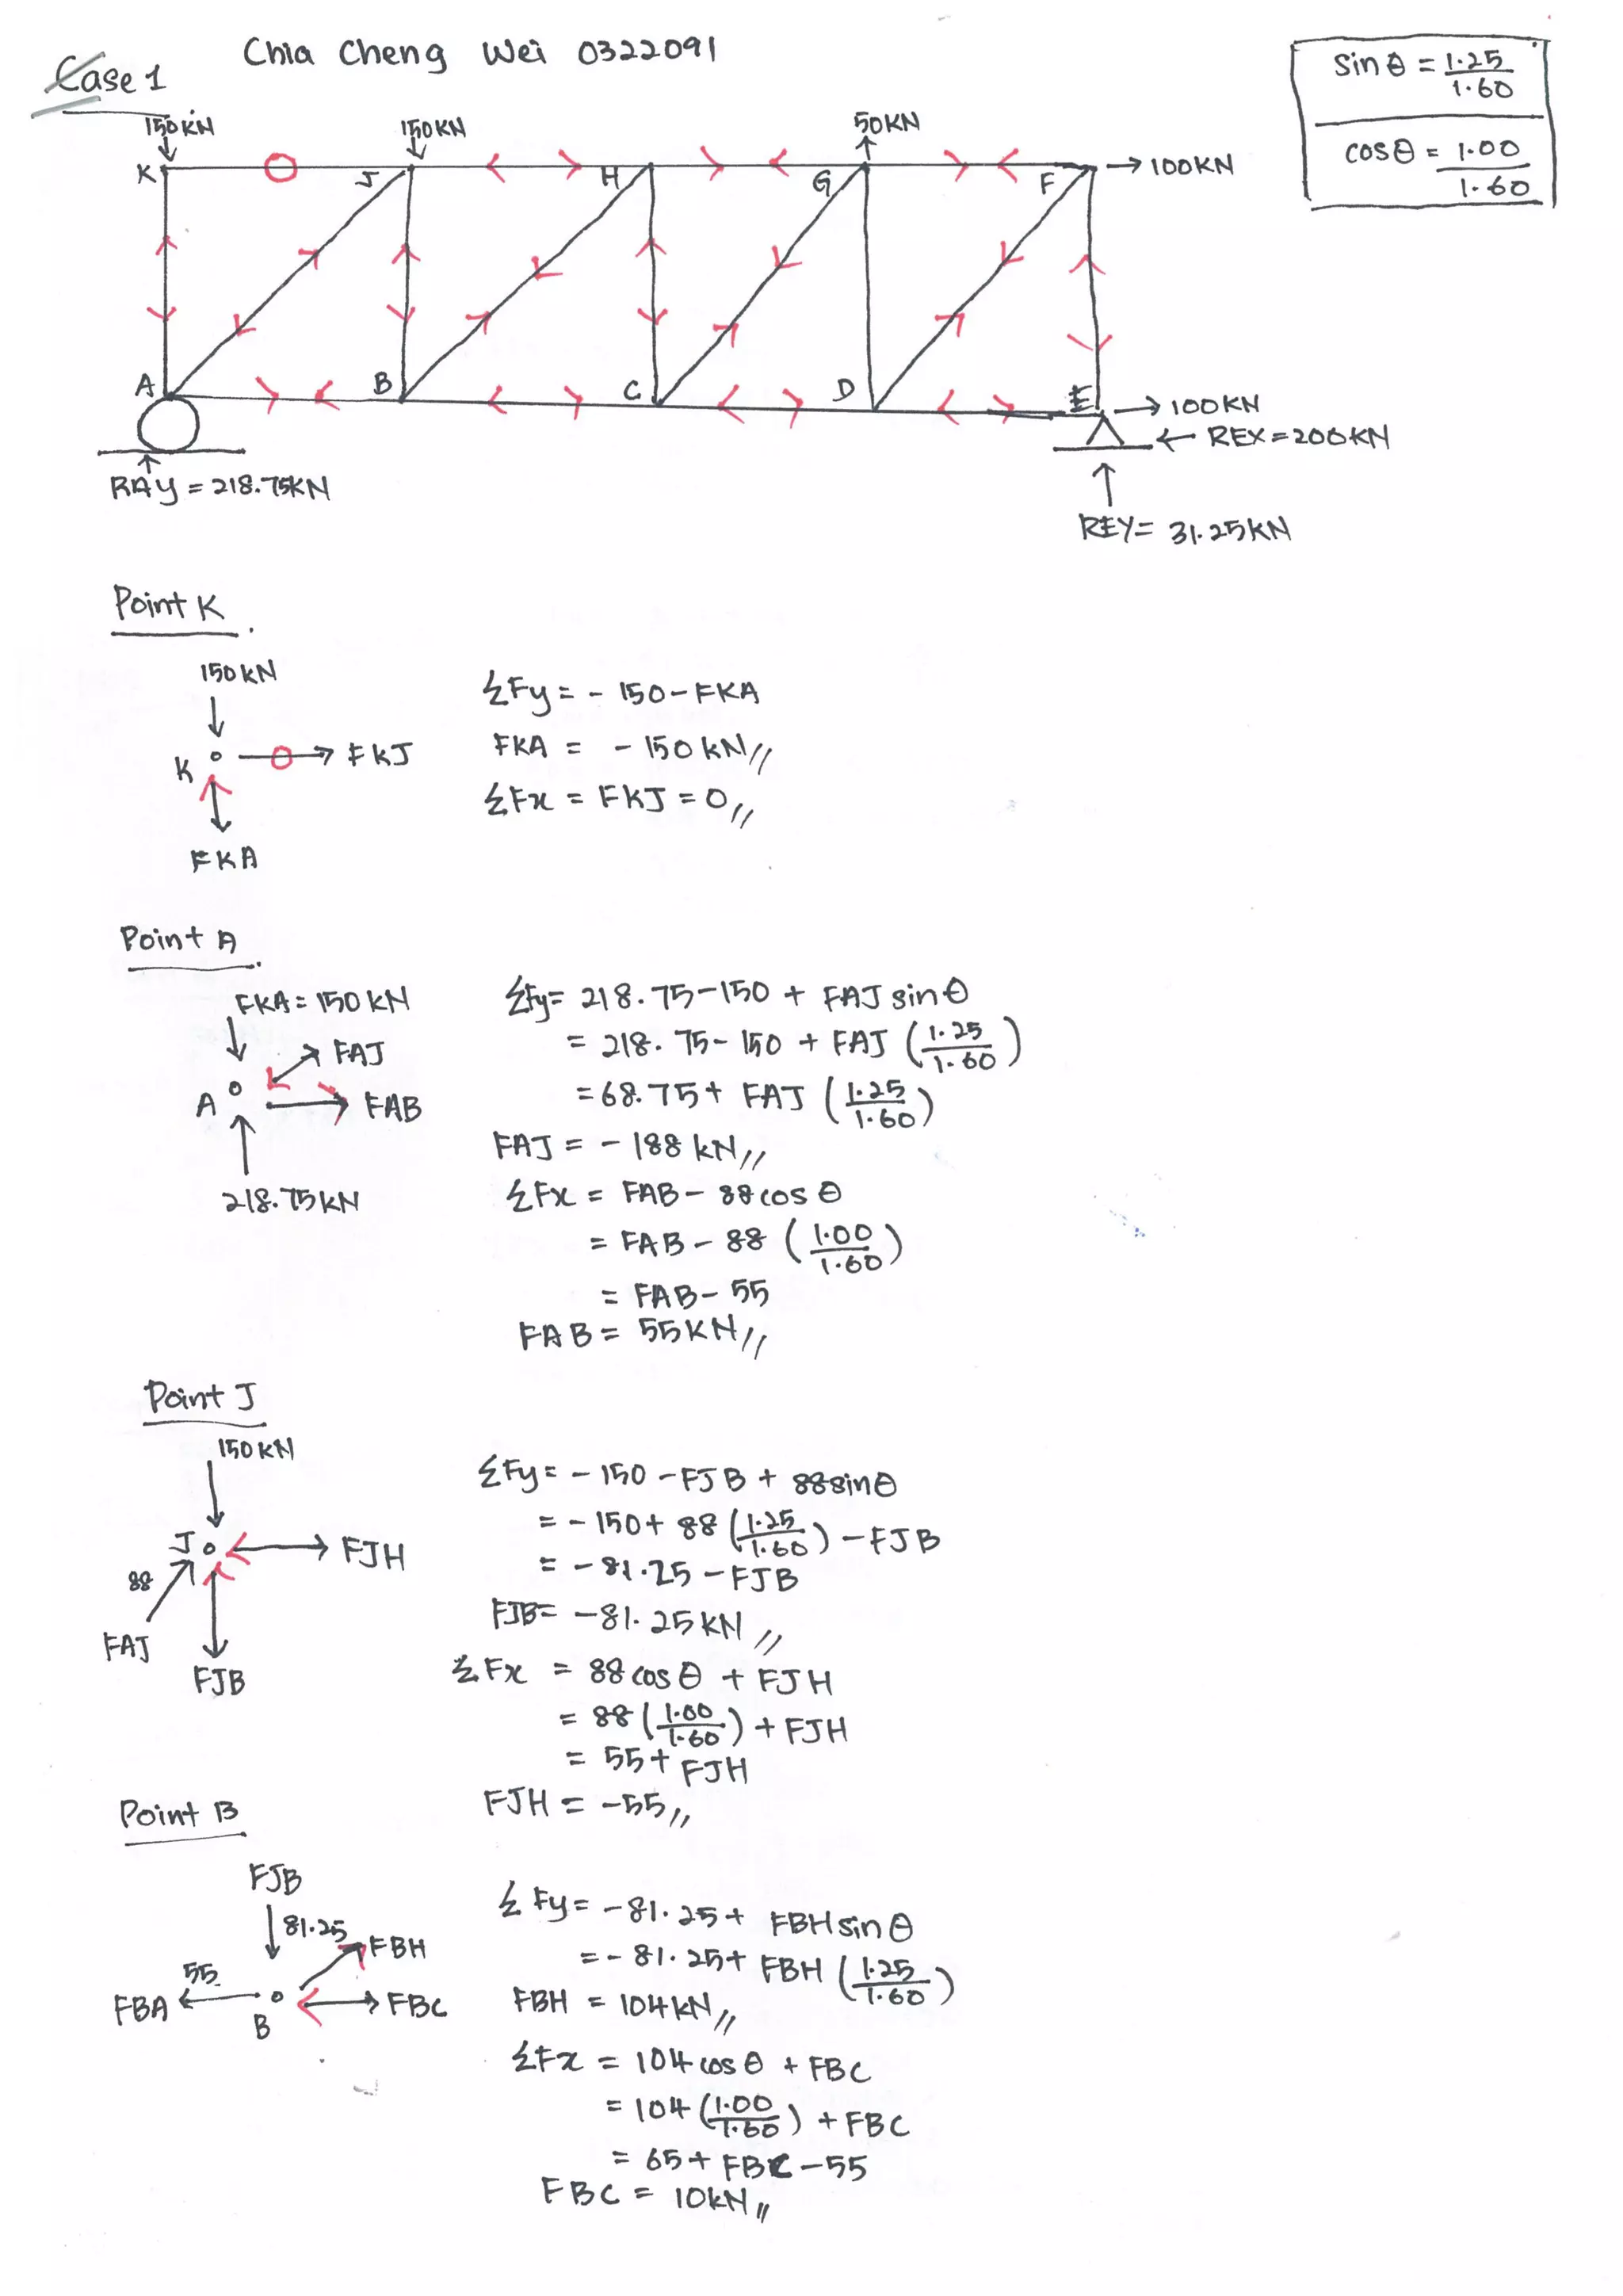 Case 1
Chia Cheng Wei 0322091
sin θ = 1.25/1.60
cos θ = 1.00/1.60
150KN
150KN
50KN
K
J
H
G
F
100KN
A
B
C
D
E
100KN
REX = 200KN
RAY = 218.75KN
REY = 31.25KN
Point K
150KN
K
FKJ
FKA
ΣFy = - 150 - FKA
FKA = - 150 kN//
ΣFx = FKJ = 0//
Point A
FKA = 150 kN
FAJ
A
FAB
218.75KN
ΣFy = 218.75 - 150 + FAJ sin θ
= 218.75 - 150 + FAJ (1.25/1.60)
= 68.75 + FAJ (1.25/1.60)
FAJ = - 188 kN//
ΣFx = FAB - 88 cos θ
= FAB - 88 (1.00/1.60)
= FAB - 55
FAB = 55KN//
Point J
150KN
J
FJH
88
FAJ
FJB
ΣFy = - 150 - FJB + 88 sin θ
= - 150 + 88 (1.25/1.60) - FJB
= - 81.25 - FJB
FJB = - 81.25KN//
ΣFx = 88 cos θ + FJH
= 88 (1.00/1.60) + FJH
= 55 + FJH
FJH = - 55//
Point B
FJB
81.25
FBH
55
FBA
B
FBC
ΣFy = - 81.25 + FBH sin θ
= - 81.25 + FBH (1.25/1.60)
FBH = 104KN//
ΣFx = 104 cos θ + FBC
= 104 (1.00/1.60) + FBC
= 65 + FBC - 55
FBC = 10KN//